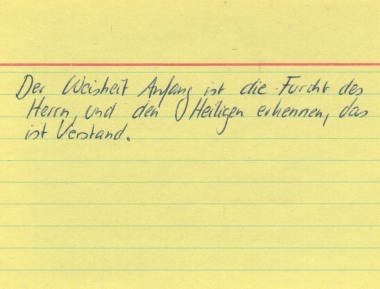 Der Weisheit Anfang ist die Furcht des
Herrn, und den Heiligen erkennen, das
ist Verstand.